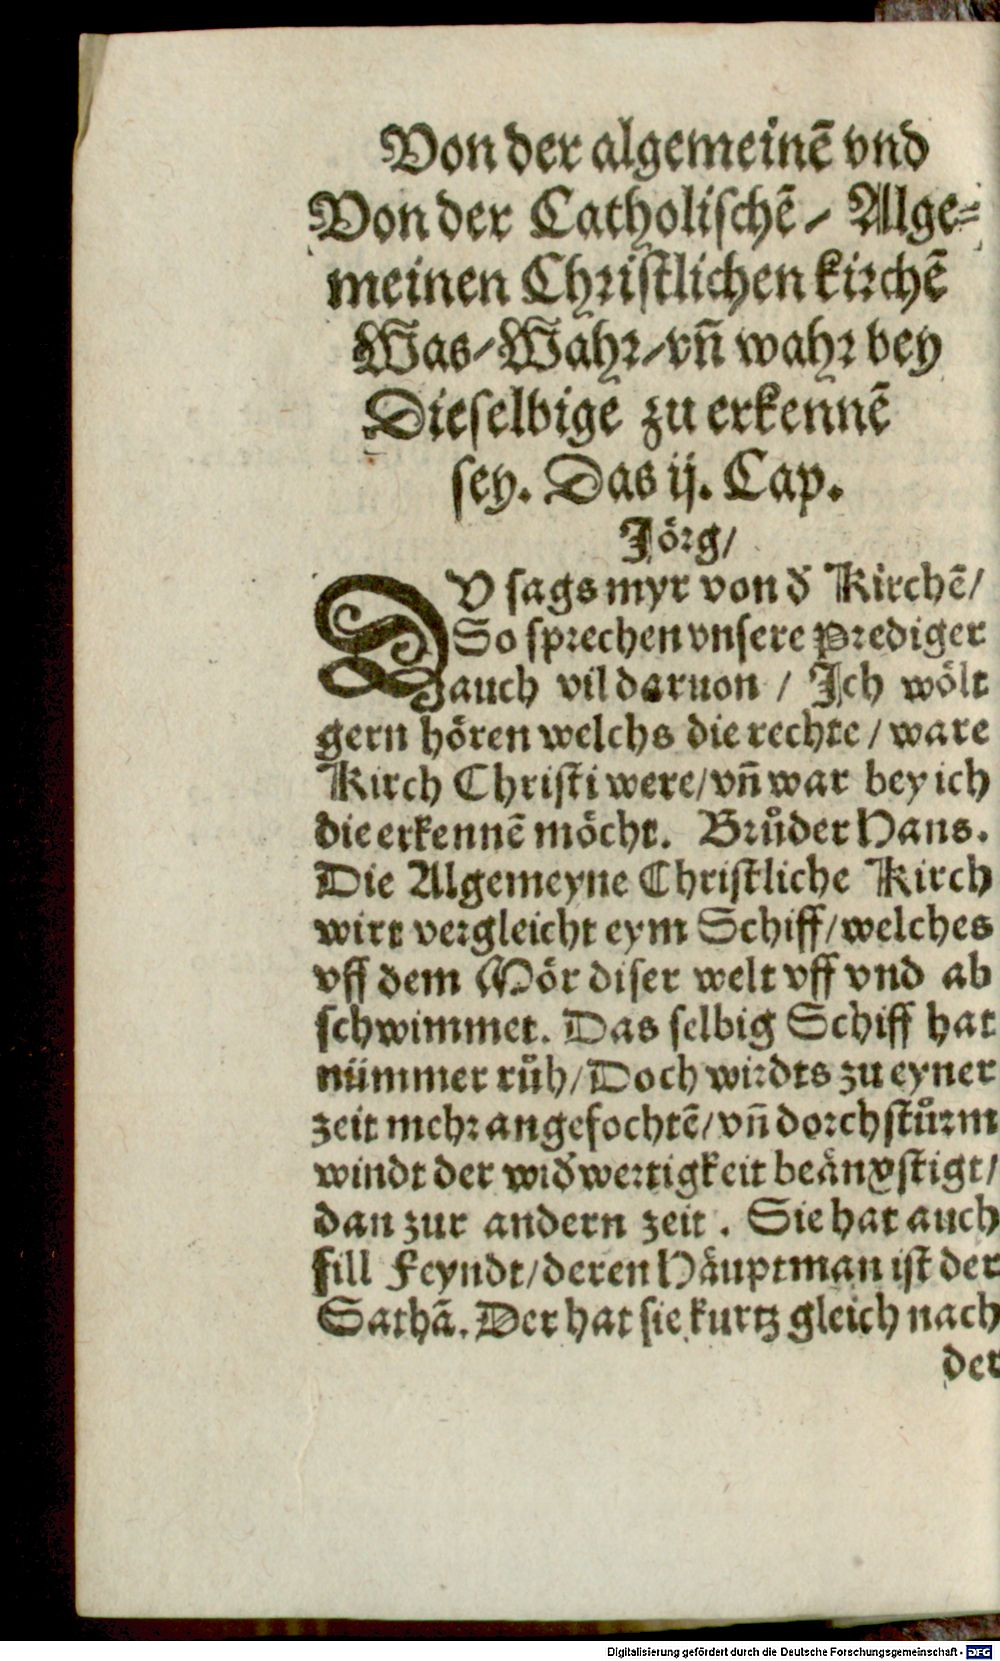 Von der algemeinē vnd
Von der Catholischē / Alge=
meinen Christlichen kirchē
Was / Wahr / vn̄ wahr bey
Dieselbige zu erkennē
sey. Das ij. Cap.
Jörg /
DV sags myr von d̄ Kirchē /
So sprechen vnsere Prediger
auch vil daruon / Ich wölt
gern hören welchs die rechte / ware
Kirch Christi were / vn̄ war bey ich
die erkennē möcht. Brůder Hans.
Die Algemeyne Christliche Kirch
wirt vergleicht eym Schiff / welches
vff dem Mör diser welt vff vnd ab
schwimmet. Das selbig Schiff hat
nümmer růh / Doch wirdts zu eyner
zeit mehr angefochtē / vn̄ dorch stůrm
windt der wid̄wertigkeit beänxstigt /
dan zur andern zeit. Sie hat auch
fill Feyndt / deren Häuptman ist der
Sathā. Der hat sie kurtz gleich nach
der
Digitalisierung gefördert durch die Deutsche Forschungsgemeinschaft - DFG